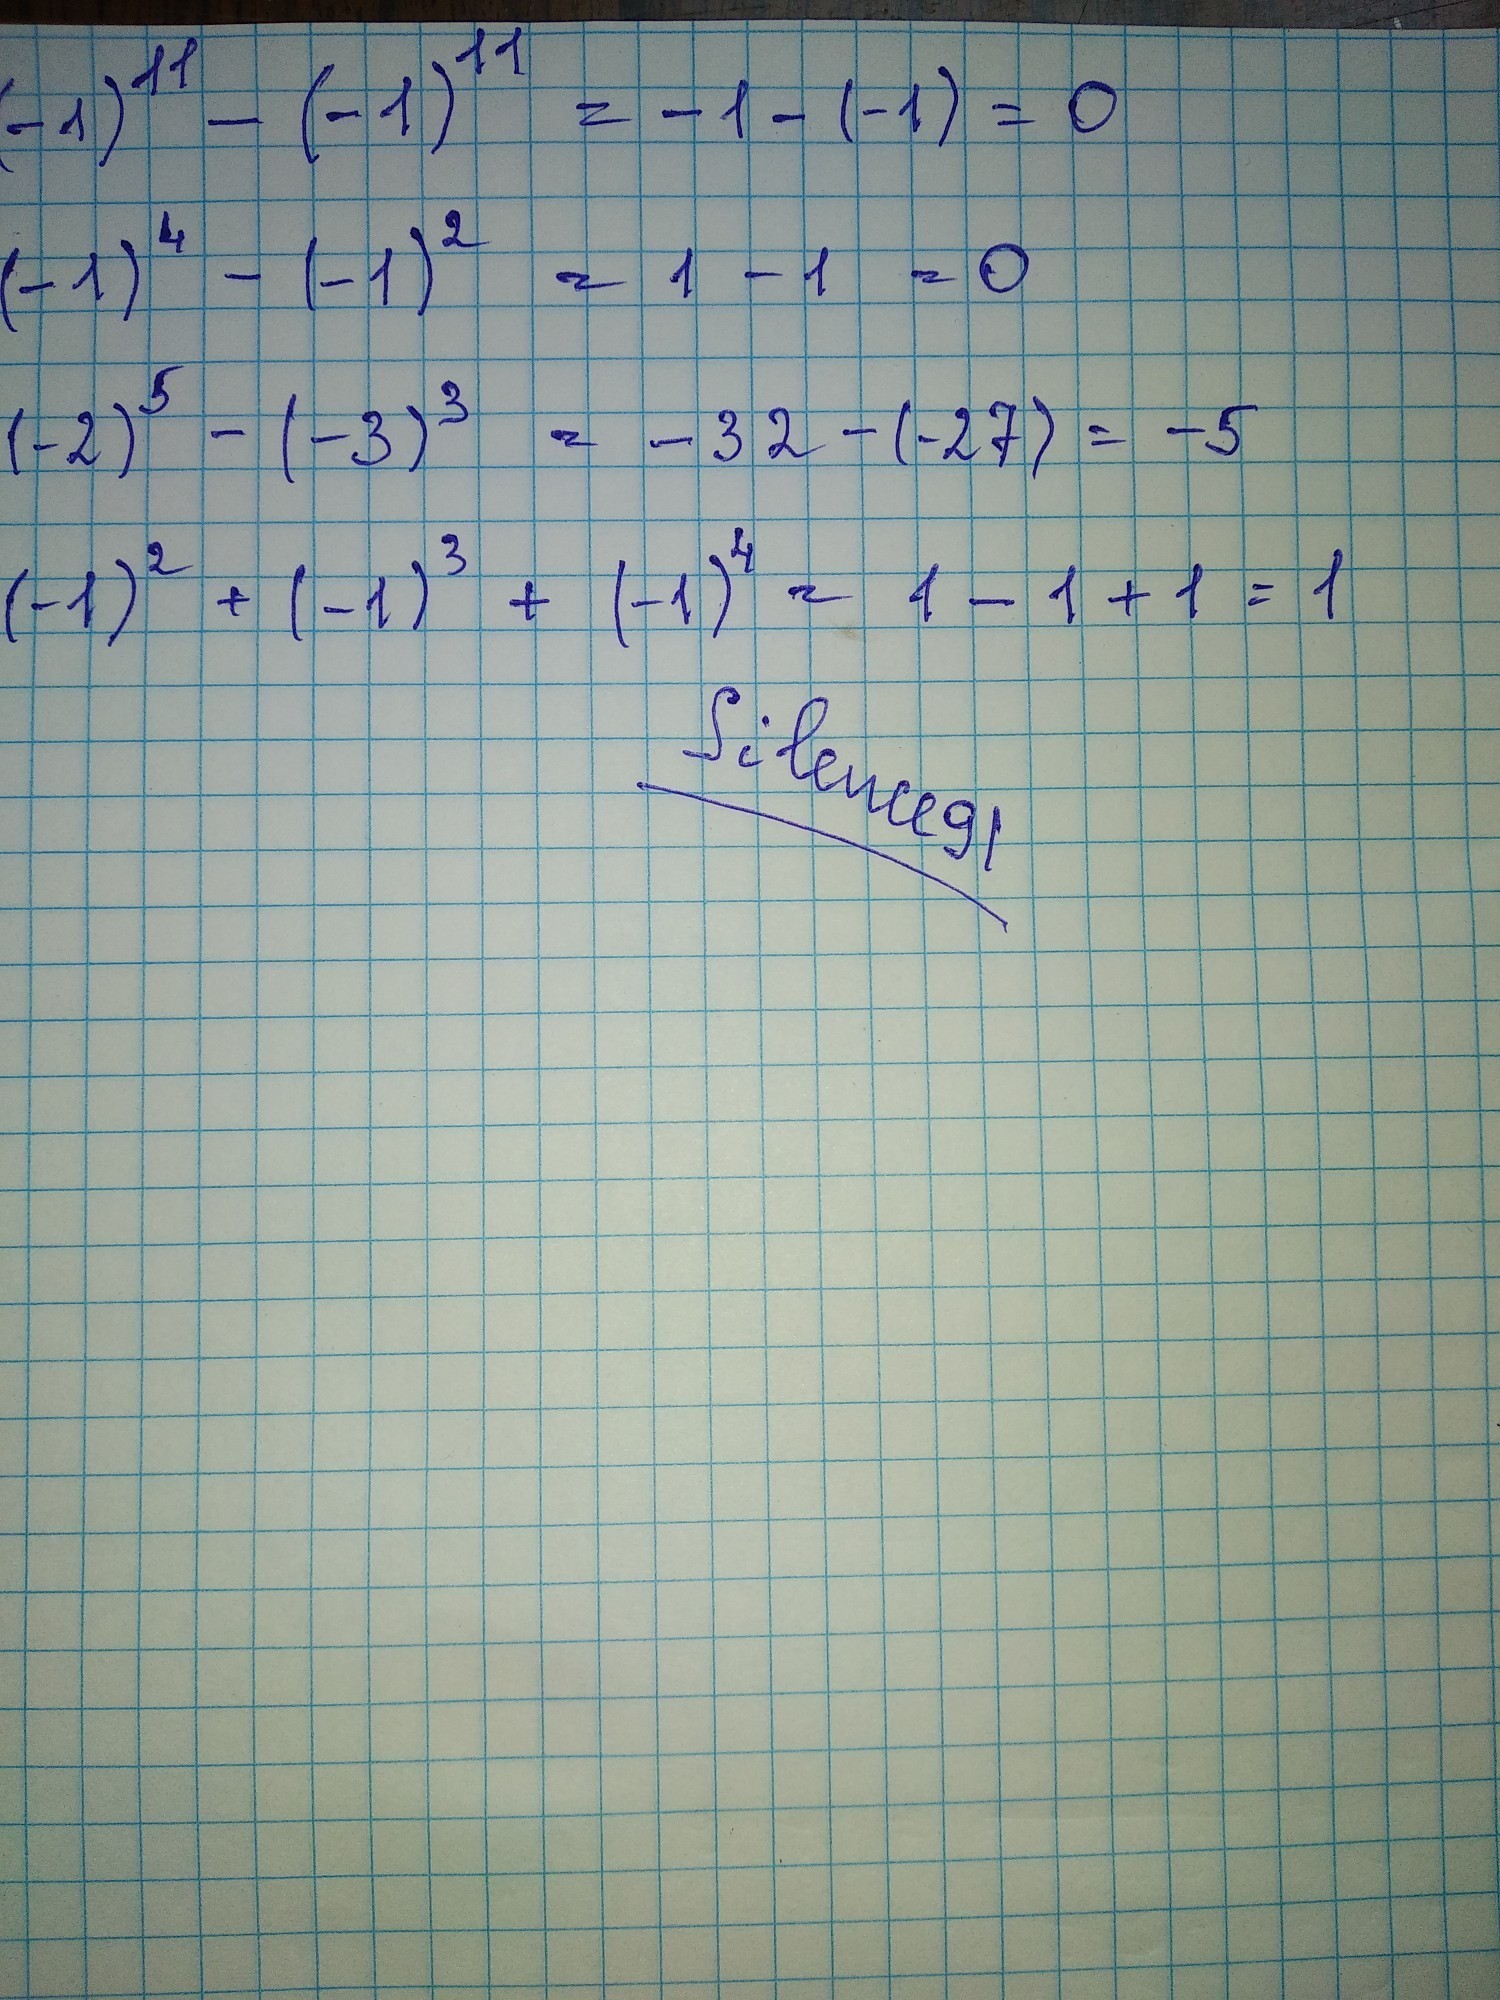 (-1)¹¹ - (-1)¹¹ = -1 - (-1) = 0
(-1)⁴ - (-1)² = 1 - 1 = 0
(-2)⁵ - (-3)³ = -32 - (-27) = -5
(-1)² + (-1)³ + (-1)⁴ = 1 - 1 + 1 = 1
Silence91